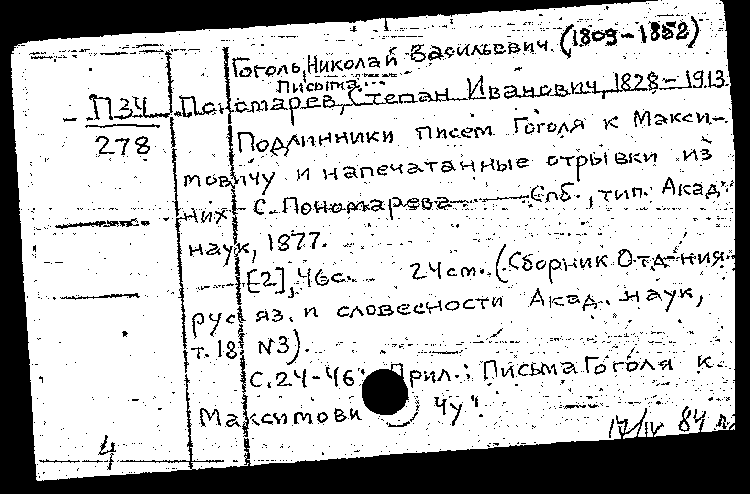 Гоголь, Николай Васильевич. (1809-1852)
Письма...
П34 Пономарев, Степан Иванович, 1828-1913
278 Подлинники писем Гоголя к Макси-
мовичу и напечатанные отрывки из
них С. Пономарева Спб., тип. Акад.
наук, 1877.
[2], 46с. 24см. (Сборник Отд-ния
рус яз. и словесности Акад. наук,
т. 18 N3).
С. 24-46: Прил.: "Письма Гоголя к
Максимови чу".
4 17/IV 84